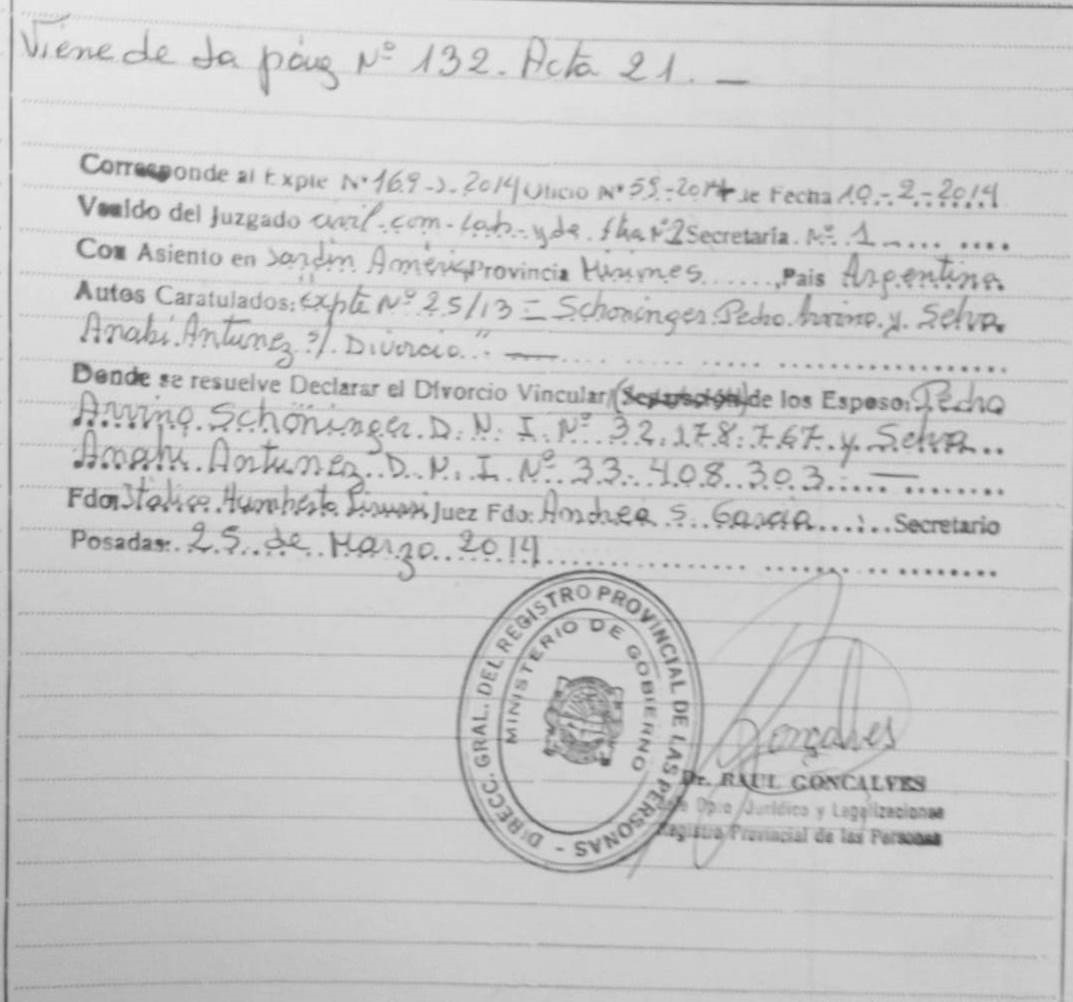 Viene de la pág Nº 132. Acta 21. —
Corresponde al Expte Nº 169-J-2014 Oficio Nº 55-2014 de Fecha 10-2-2014
Venido del Juzgado civil.com-lab-y de. flia Nº2 Secretaría. Nº. 1
Con Asiento en Jardín América Provincia Misiones......, País Argentina
Autos Caratulados: Expte Nº 25/13 = Schoninger. Pedro. Arrino. y. Selva.
Anahi. Antunez s/. Divorcio." —
Donde se resuelve Declarar el Divorcio Vincular (Separación) de los Esposo: Pedro
Arrino. Schöninger. D. N. I. Nº. 32.178.767. y. Selva..
Anahi. Antunez. D. N. I. Nº. 33.408.303. —
Fdo: Humberto Juez Fdo: Andrea S. Garcia....:.. Secretario
Posadas:. 25. de. Marzo. 2014
DIRECC. GRAL. DEL REGISTRO PROVINCIAL DE LAS PERSONAS -
MINISTERIO DE GOBIERNO
Gonçalves
Dr. RAUL GONCALVES
Dpto Jurídico y Legalizaciones
Registro Provincial de las Personas